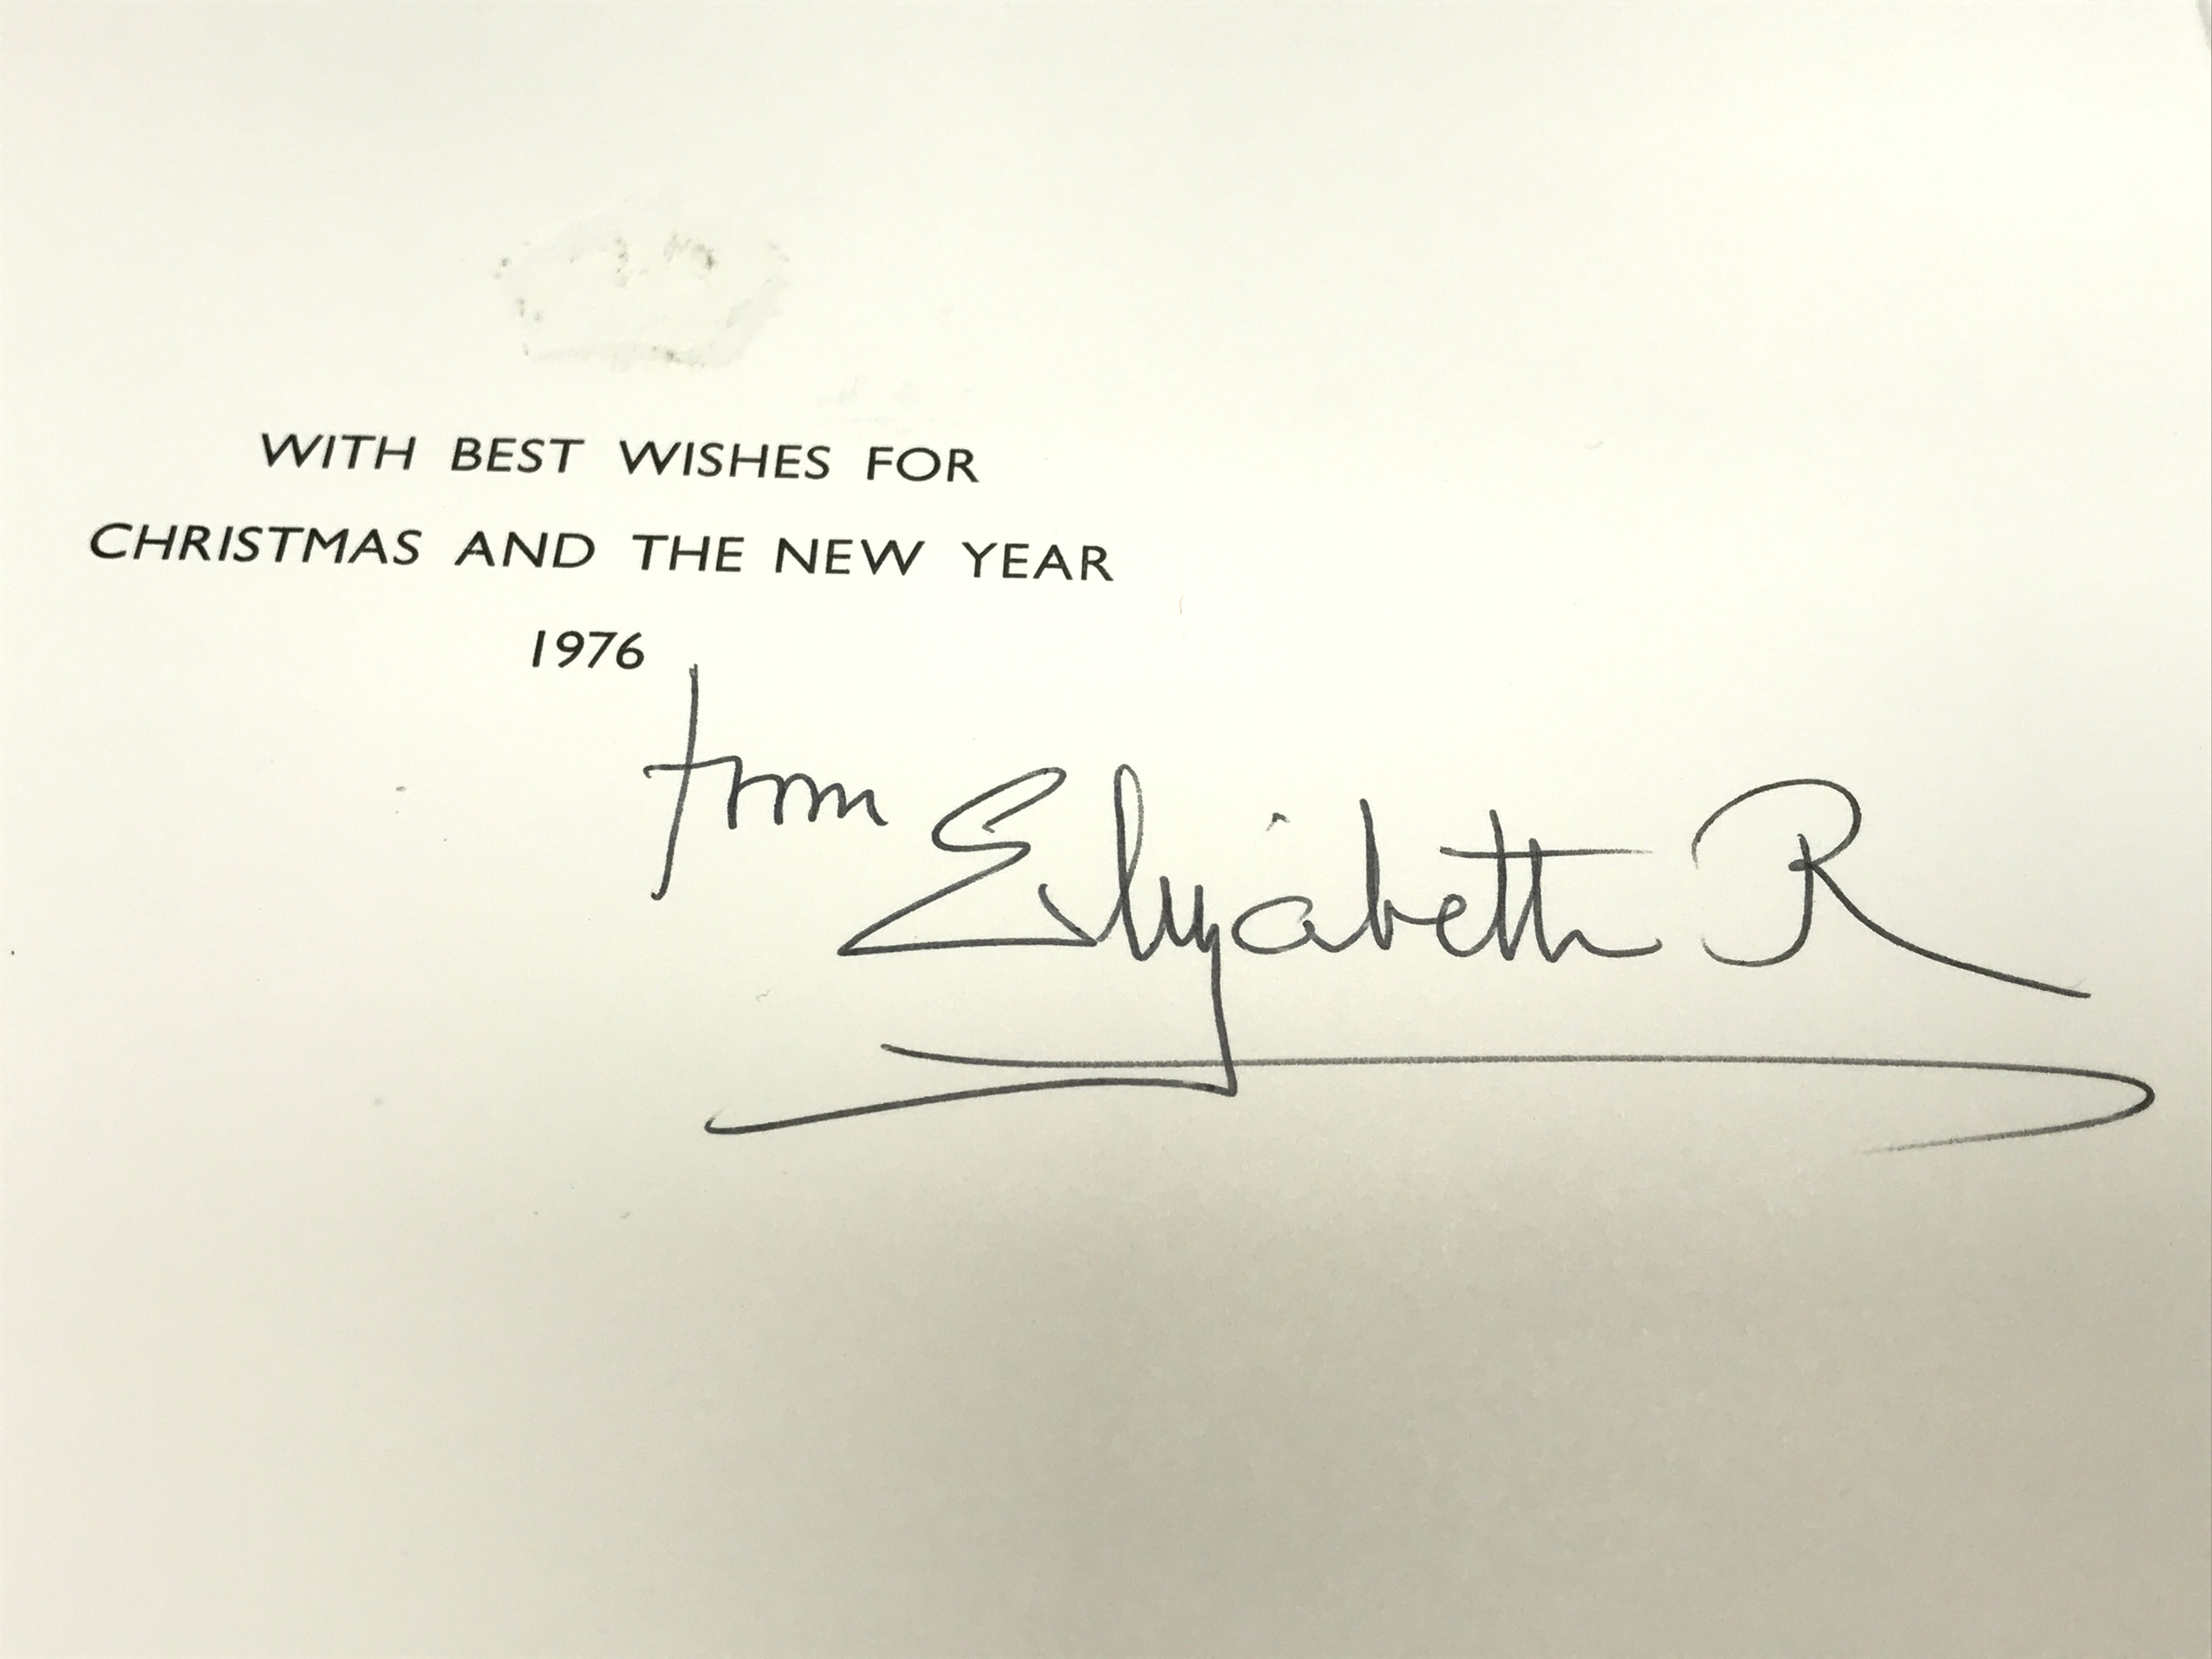 WITH BEST WISHES FOR
CHRISTMAS AND THE NEW YEAR
1976
from Elizabeth R